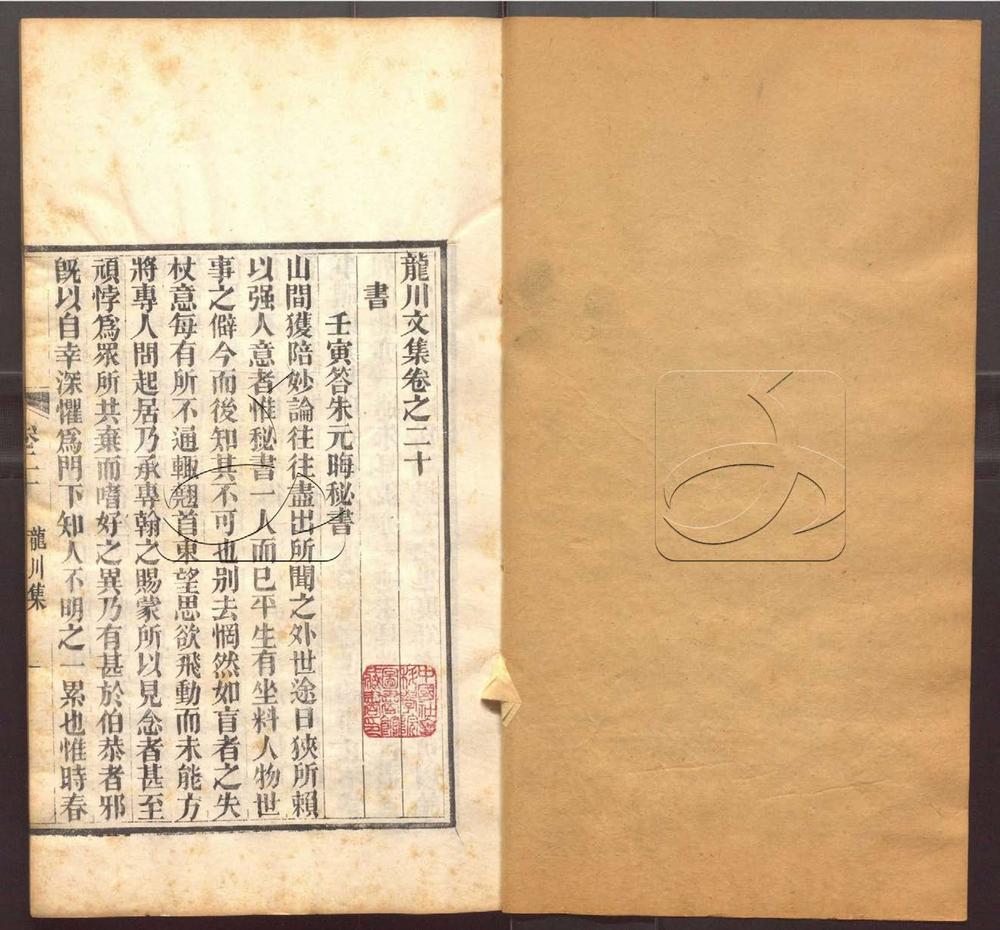 龍川文集卷之二十
書
壬寅答朱元晦秘書
山間獲陪妙論往往盡出所聞之外世途日狹所賴
以强人意者惟秘書一人而已平生有坐料人物世
事之僻今而後知其不可也别去惘然如盲者之失
杖意每有所不通輙翹首東望思欲飛動而未能方
將專人問起居乃承專翰之賜蒙所以見念者甚至
頑悖爲衆所共棄而嗜好之異乃有甚於伯恭者邪
旣以自幸深懼爲門下知人不明之一累也惟時春
龍川集
一